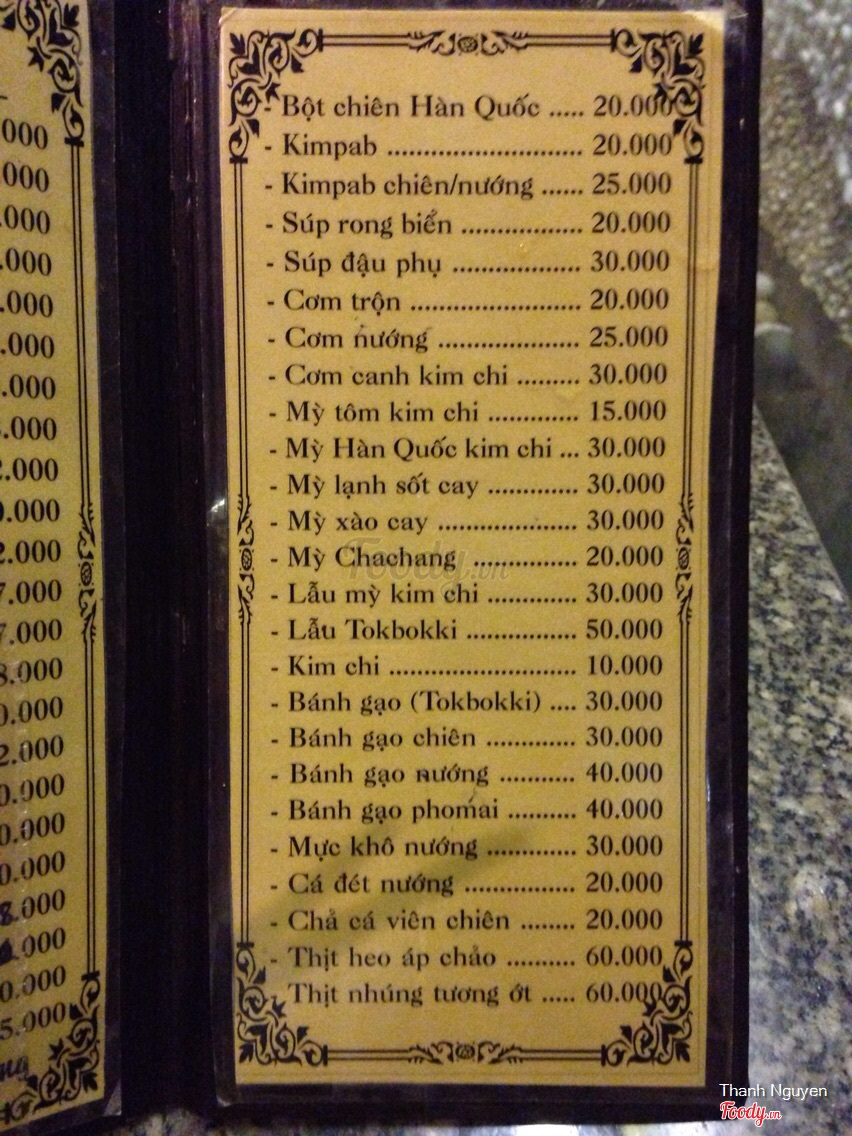 000
000
.000
.000
.000
.000
.000
.000
2.000
0.000
2.000
7.000
7.000
8.000
0.000
2.000
0.000
0.000
0.000
8.000
.000
0.000
5.000
- Bột chiên Hàn Quốc ..... 20.000
- Kimpab ............................ 20.000
- Kimpab chiên/nướng ...... 25.000
- Súp rong biển ................. 20.000
- Súp đậu phụ .................. 30.000
- Cơm trộn ........................ 20.000
- Cơm nướng .................... 25.000
- Cơm canh kim chi ......... 30.000
- Mỳ tôm kim chi ............. 15.000
- Mỳ Hàn Quốc kim chi ... 30.000
- Mỳ lạnh sốt cay ............. 30.000
- Mỳ xào cay .................... 30.000
- Mỳ Chachang ............... 20.000
- Lẩu mỳ kim chi ............. 30.000
- Lẩu Tokbokki ................ 50.000
- Kim chi ........................... 10.000
- Bánh gạo (Tokbokki) .... 30.000
- Bánh gạo chiên ............. 30.000
- Bánh gạo nướng ........... 40.000
- Bánh gạo phomai .......... 40.000
- Mực khô nướng ............. 30.000
- Cá đét nướng ................ 20.000
- Chả cá viên chiên ........ 20.000
- Thịt heo áp chảo .......... 60.000
Thịt nhúng tương ớt ..... 60.000
Foody.vn
Thanh Nguyen
Foody.vn